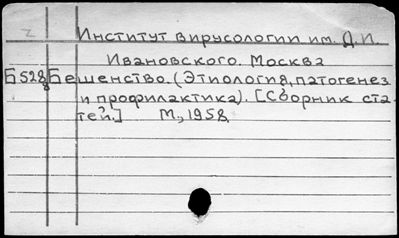 Институт вирусологии им. Д.И.
Ивановского. Москва
Б528 Бешенство. (Этиология, патогенез
и профилактика). [Сборник ста-
тей.] М., 1958